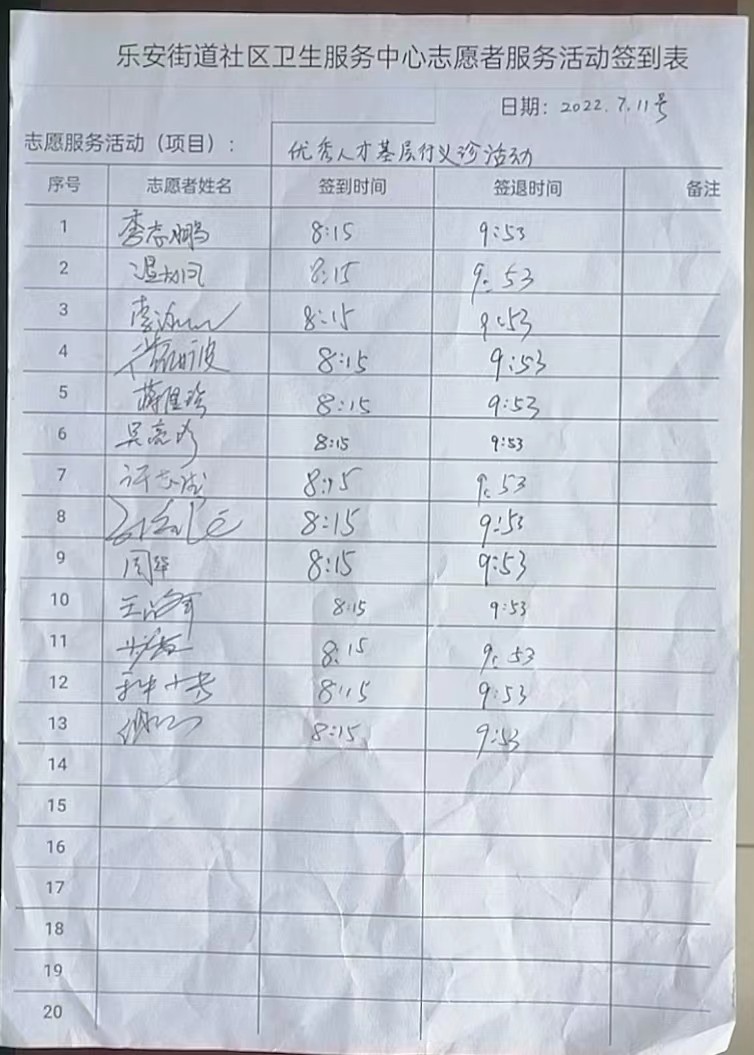 乐安街道社区卫生服务中心志愿者服务活动签到表
日期：2022.7.11号
志愿服务活动（项目）： 优秀人才基层行义诊活动
序号 志愿者姓名 签到时间 签退时间 备注
1 李志鹏 8:15 9:53
2 8:15 9:53
3 8:15 9:53
4 8:15 9:53
5 8:15 9:53
6 8:15 9:53
7 8:15 9:53
8 8:15 9:53
9 周华 8:15 9:53
10 8:15 9:53
11 8:15 9:53
12 8:15 9:53
13 8:15 9:53
14
15
16
17
18
19
20